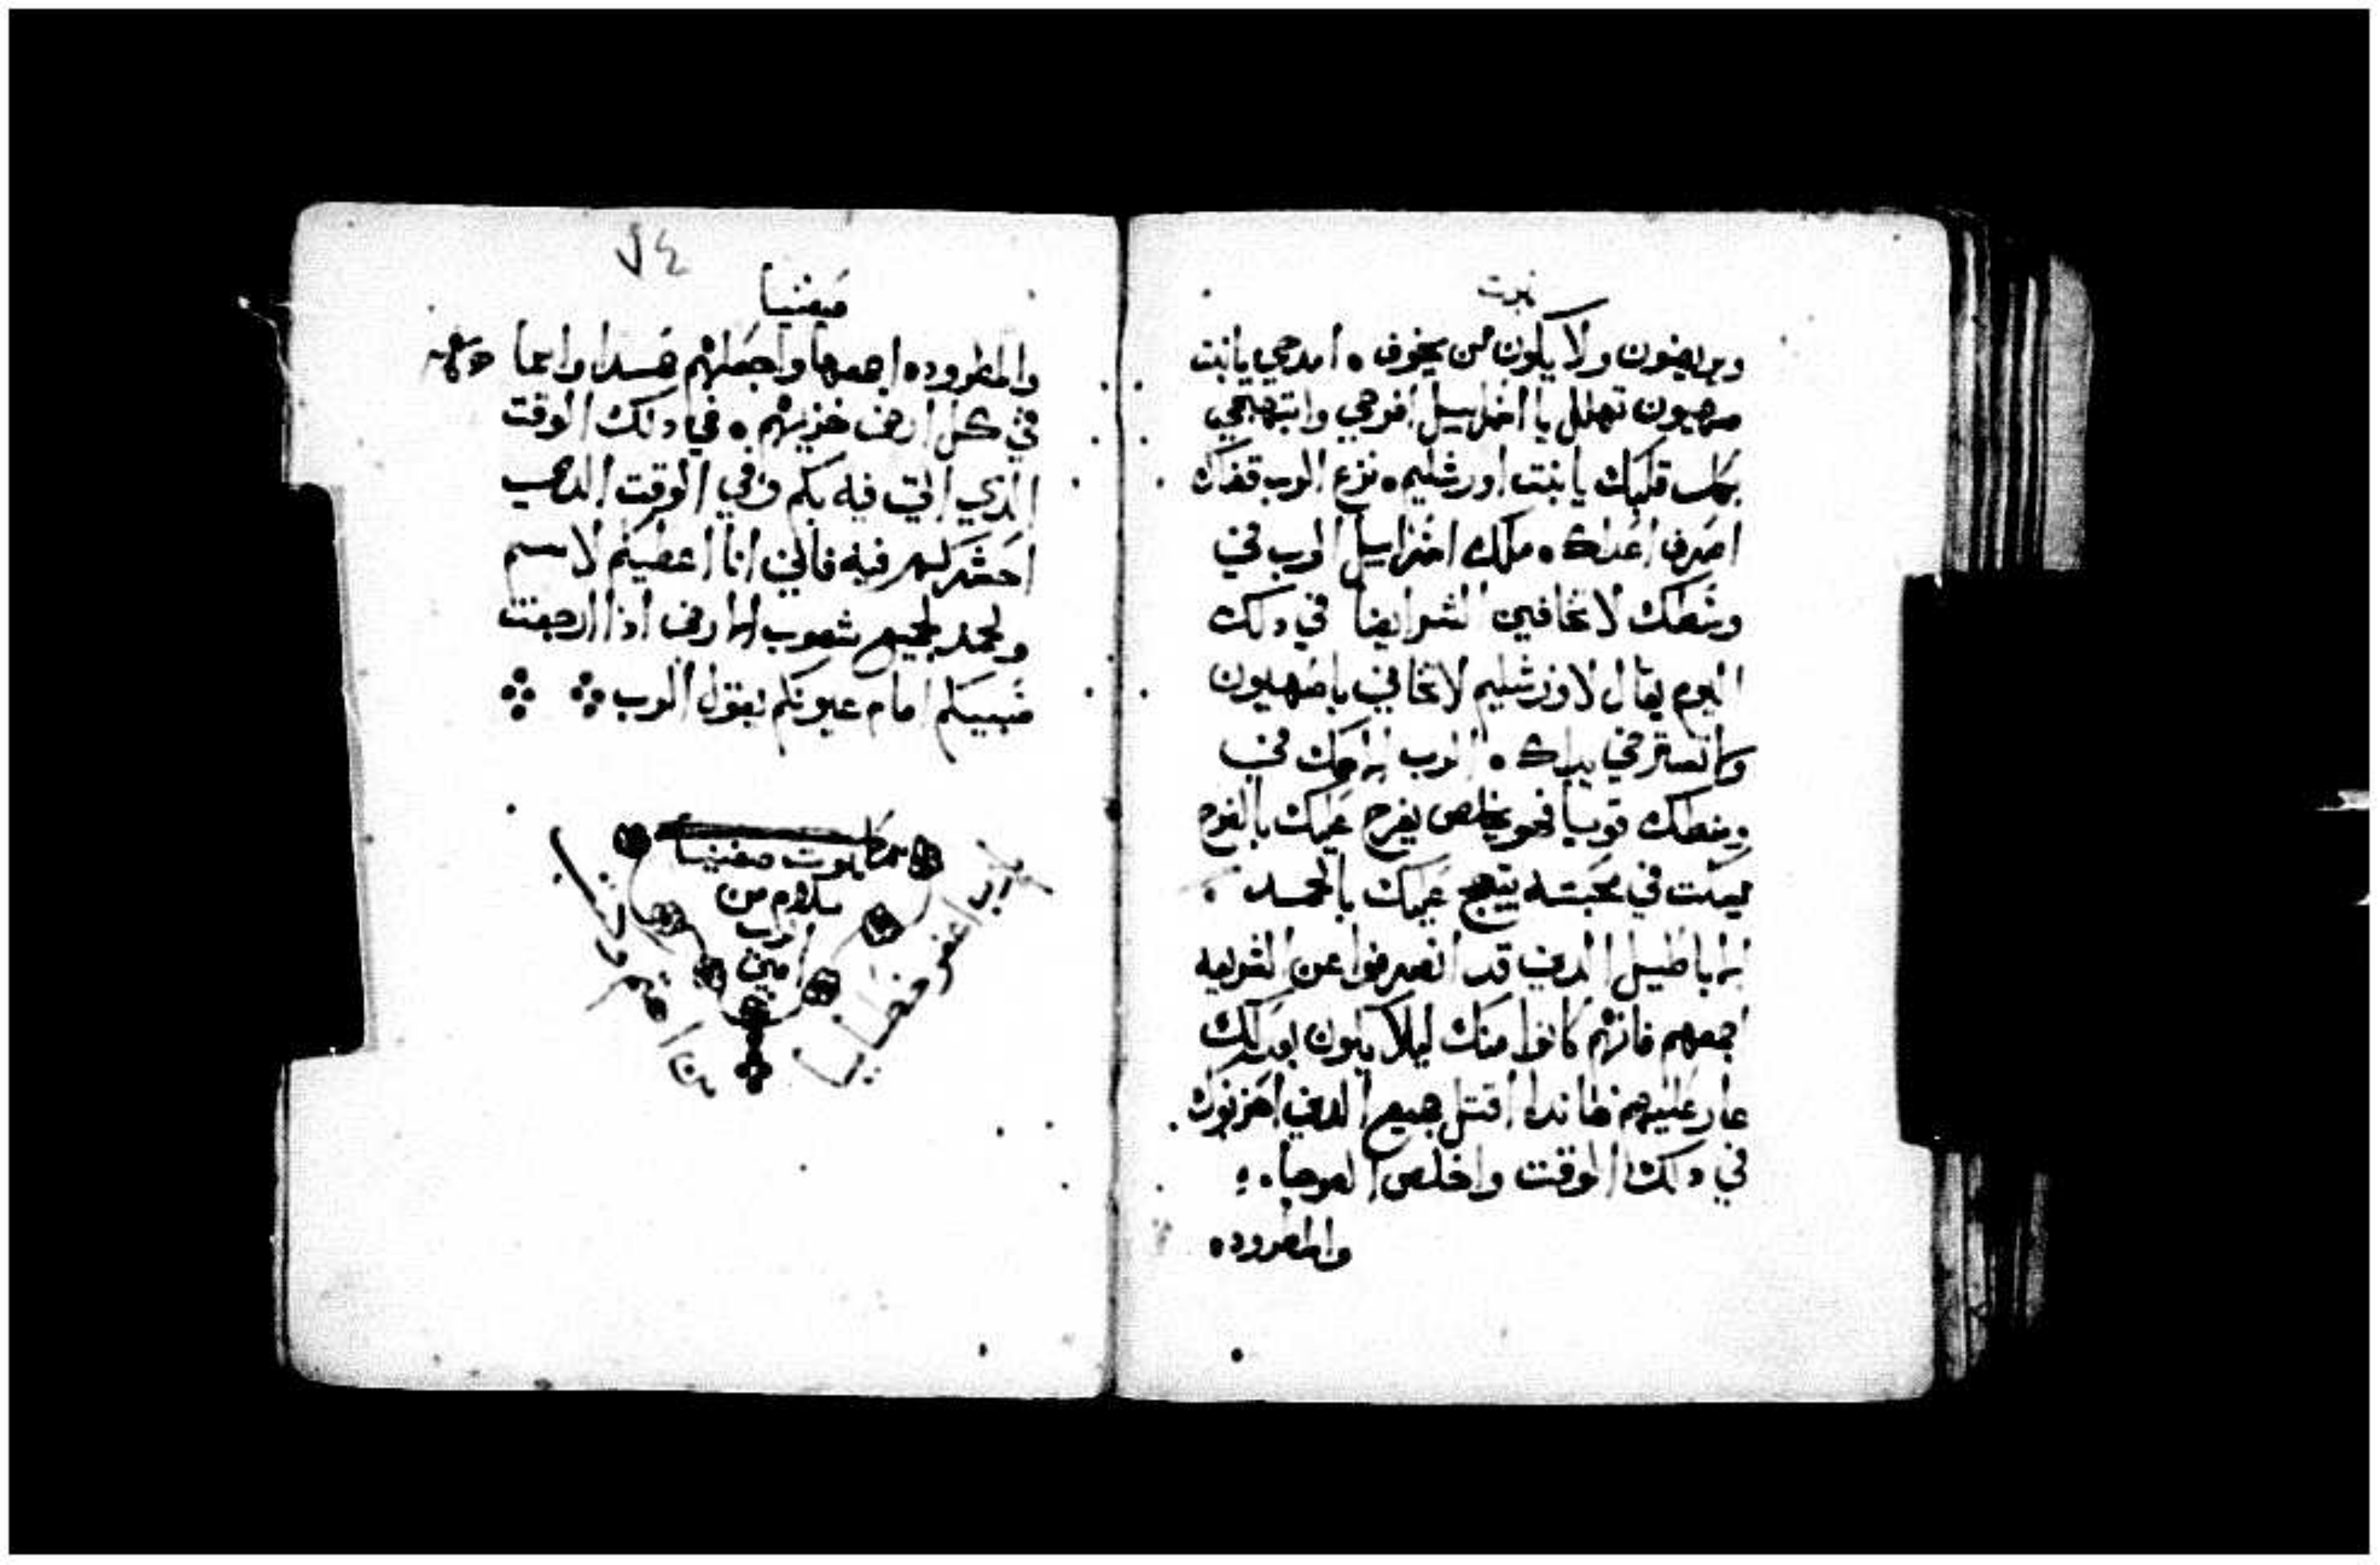 نبوت
ويربضون ولا يكون من يخوف ٠ امدحي يابنت
صهيون تهلل يا اسراييل افرحي وابتهجي
بكل قلبك يا بنت اورشليم ٠ نزع الرب قضاك
اصرف اعداك ٠ ملك اسراييل الرب في
وسطك لا تخافين الشر ايضا في دلك
اليوم يقال لاورشليم لا تخافي يا صهيون
يداك ٠ الرب الاهك في
وسطك قويا فهو يخلص يفرح عليك بالفرح
في محبته يبتهج عليك بالحمد
الاباطيل الدين قد انصرفوا عن الشريعه
اجمعهم فانهم كانوا منك ليلا يكون لك
عار عليهم هاندا اقتل جميع الدين احزنوك
في دلك الوقت واخلص العرجا
والمطروده
٧٤
صفنيا
والمطروده اجمعها واجعلهم واسما
في كل ارض خزيهم ٠ في دلك الوقت
الذي اتي فيه بكم وفي الوقت الدي
احشركم فيه فانني انا اعطيكم لاسم
ولحمد لجميع شعوب الارض اذا ارجعت
سبيكم امام عيونكم يقول الرب
نبوت صفنيا
سلام من
الرب
امين
يا رب اغفر خطايا